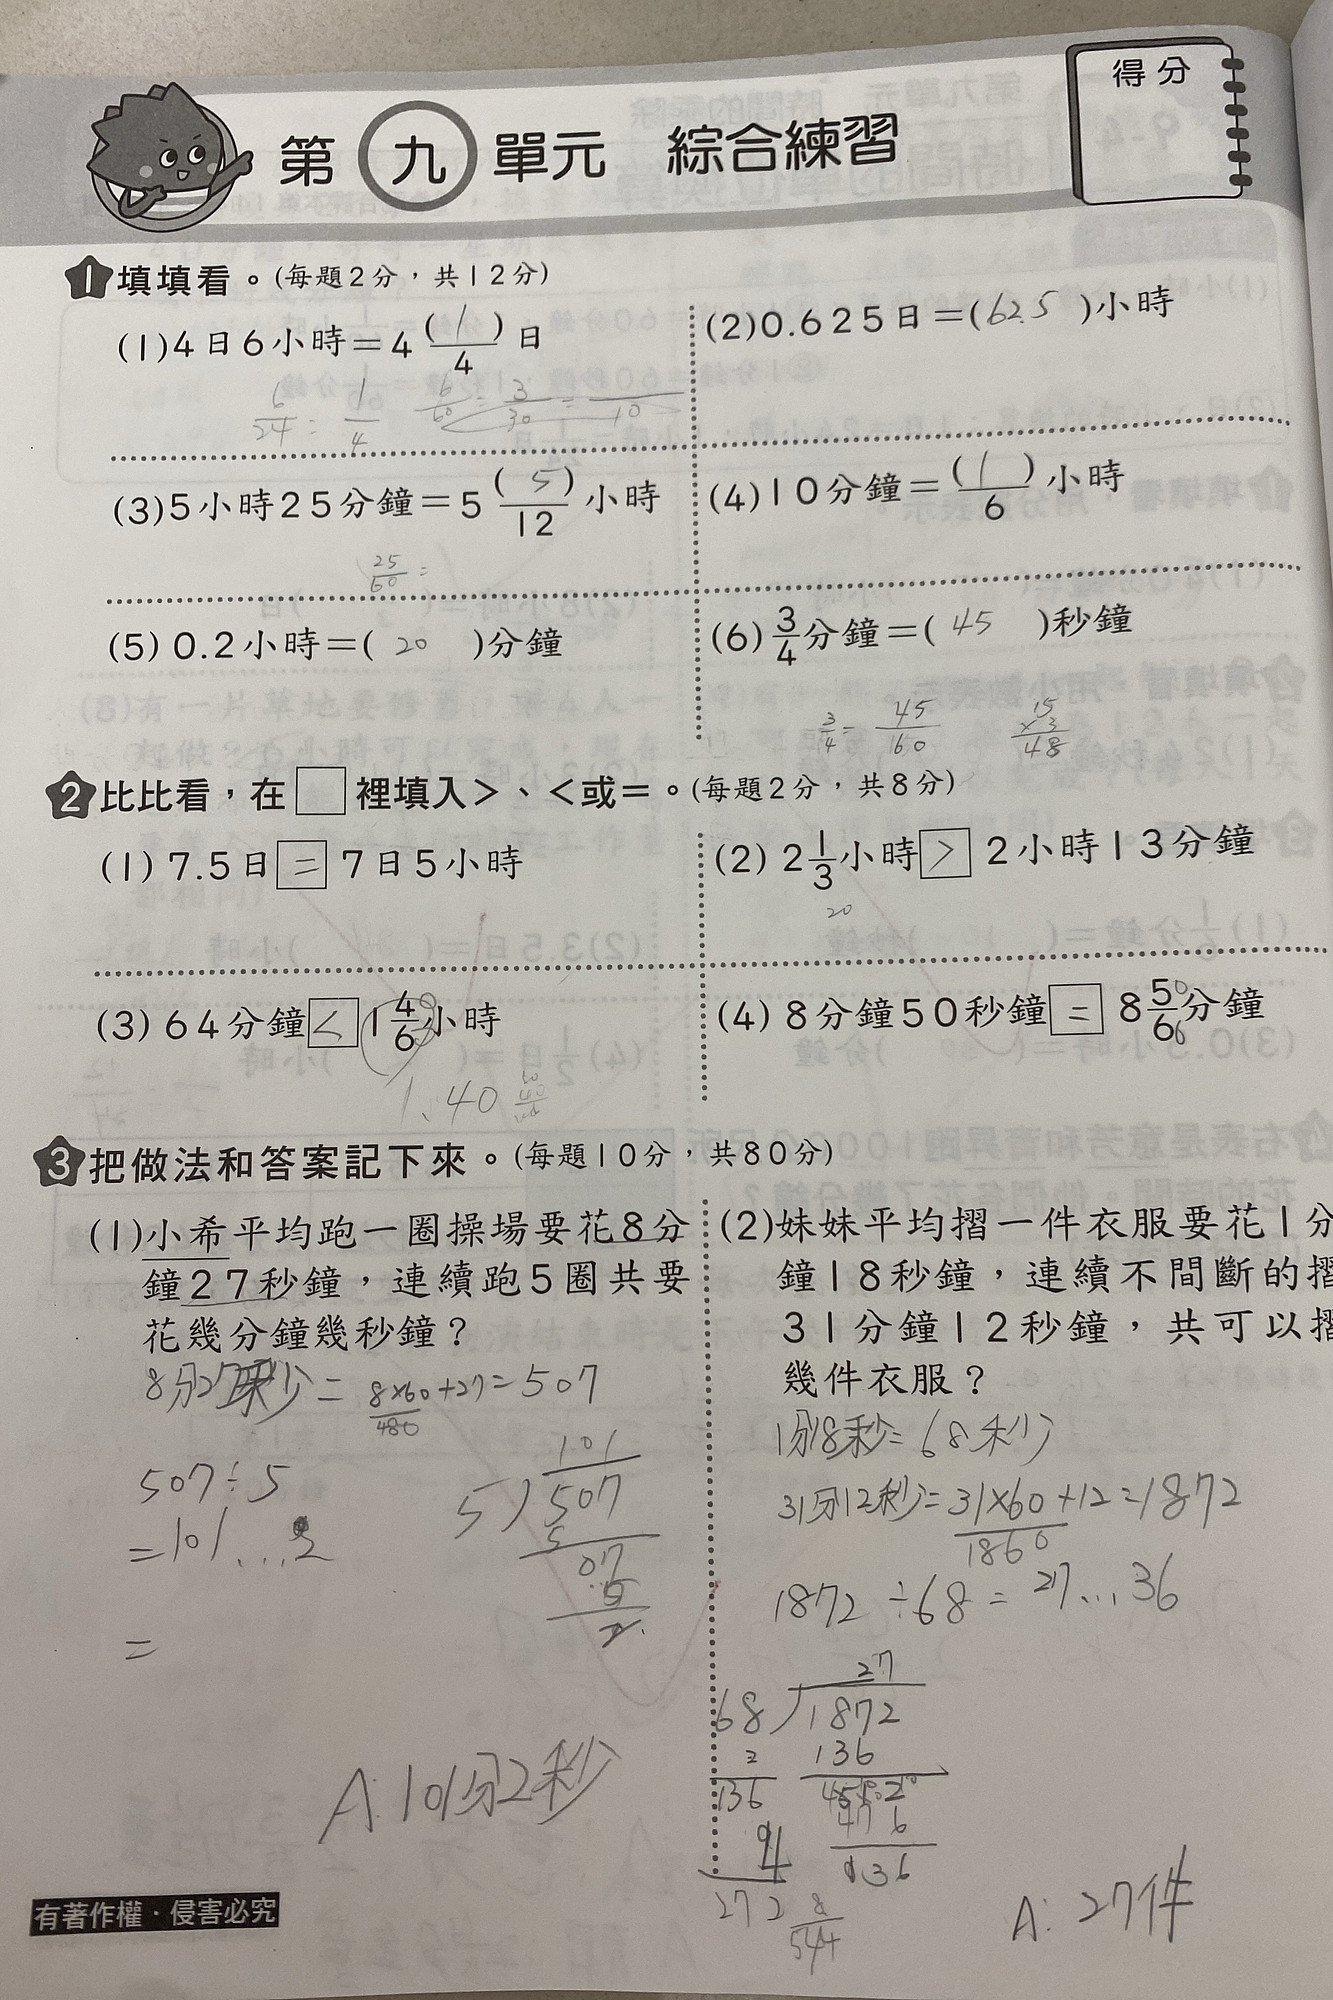 得分
第九單元 綜合練習
1 填填看。(每題2分，共12分)
(1)4日6小時=4(1)/4日
(2)0.625日=(62.5)小時
6/24=1/4 6/60=3/30=/10
(3)5小時25分鐘=5(5)/12小時
(4)10分鐘=(1)/6小時
25/60=
(5)0.2小時=(20)分鐘
(6)3/4分鐘=(45)秒鐘
3/4=45/60
15
×3
48
2 比比看，在□裡填入>、<或=。(每題2分，共8分)
(1)7.5日=7日5小時
(2)2 1/3小時>2小時13分鐘
20
(3)64分鐘<1 40/6小時
(4)8分鐘50秒鐘=8 50/66分鐘
1.40
3 把做法和答案記下來。(每題10分，共80分)
(1)小希平均跑一圈操場要花8分
鐘27秒鐘，連續跑5圈共要
花幾分鐘幾秒鐘？
8分27秒=8×60+27=507
480
507÷5
=101...2
=
101
5)507
5
07
5
2
A:101分2秒
(2)妹妹平均摺一件衣服要花1分
鐘18秒鐘，連續不間斷的摺
31分鐘12秒鐘，共可以摺
幾件衣服？
1分8秒=68秒
31分12秒=31×60+12=1872
1860
1872÷68=27...36
27
68)1872
2 136
136
476
4
136
272
8
544
A:27件
有著作權·侵害必究